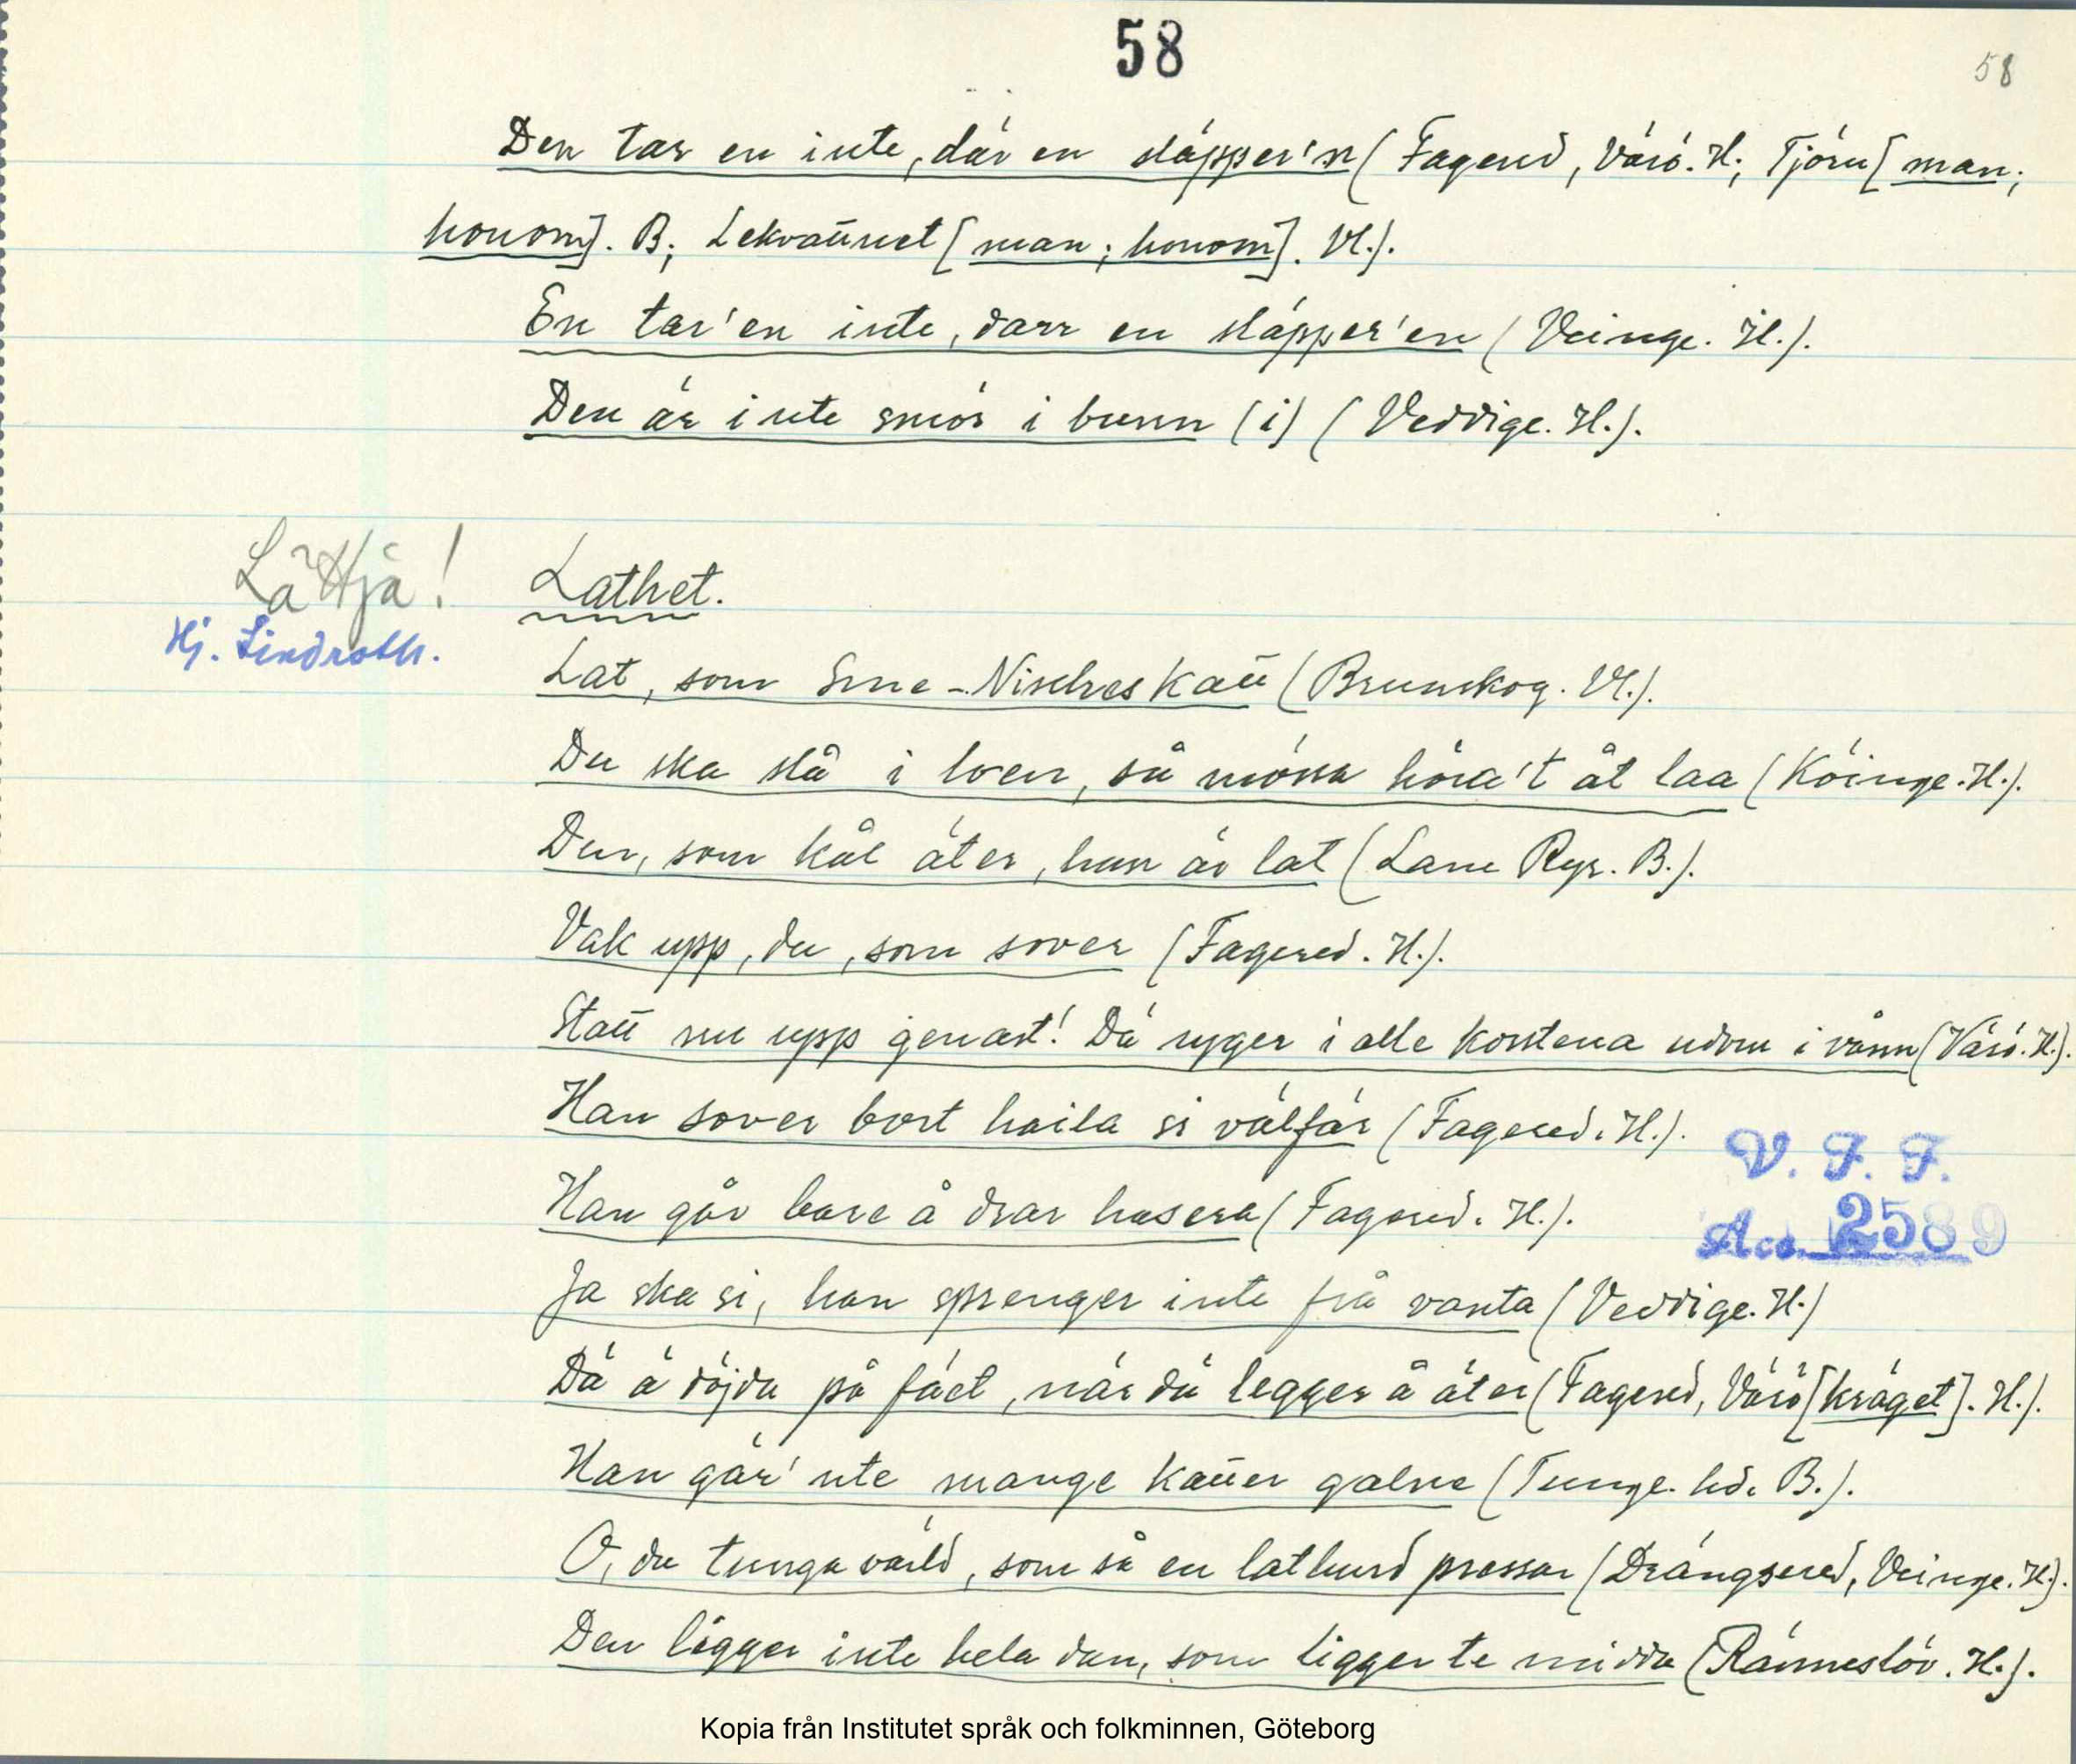 58
58
Den tar en inte, där en släpper'n (Fagered, Värö. H; Tjörn [man;
honom]. B; Lekvattnet [man; honom]. Vl.).
En tar'en inte, darr en släpper'en (Veinge. H.).
Den är inte smör i bunn (i) (Veddige. H.).
Lättja!
Hj. Lindroth.
Lathet.
Lat, som Sme-Nisches katt (Brunskog. Vl.).
Du ska slå i loen, så mössa höra't åt laa (Köinge. H.).
Den, som kål äter, han är lat (Lane Ryr. B.).
Vak upp, du, som sover (Fagered. H.).
Statt nu upp genast! Dä ryger i alle korstena udom i vånn (Värö. H.).
Han sover bort haila si välfär (Fagered. H.).
Han går bare å drar hasera (Fagered. H.).
Ja ska si, han sprenger inte frå vanta (Veddige. H.)
Dä ä döjdu på fäet, när dä legger å äter (Fagered, Värö [kräget]. H.).
Han gär'nte mange katter galne (Tunge. hd. B.).
O, du tunga värld, som så en lathund pressar (Drängsered, Veinge. H.).
Den ligger inte hela dan, som ligger te midda (Ränneslöv. H.).
V. F. F.
Acc. 2589
Kopia från Institutet språk och folkminnen, Göteborg